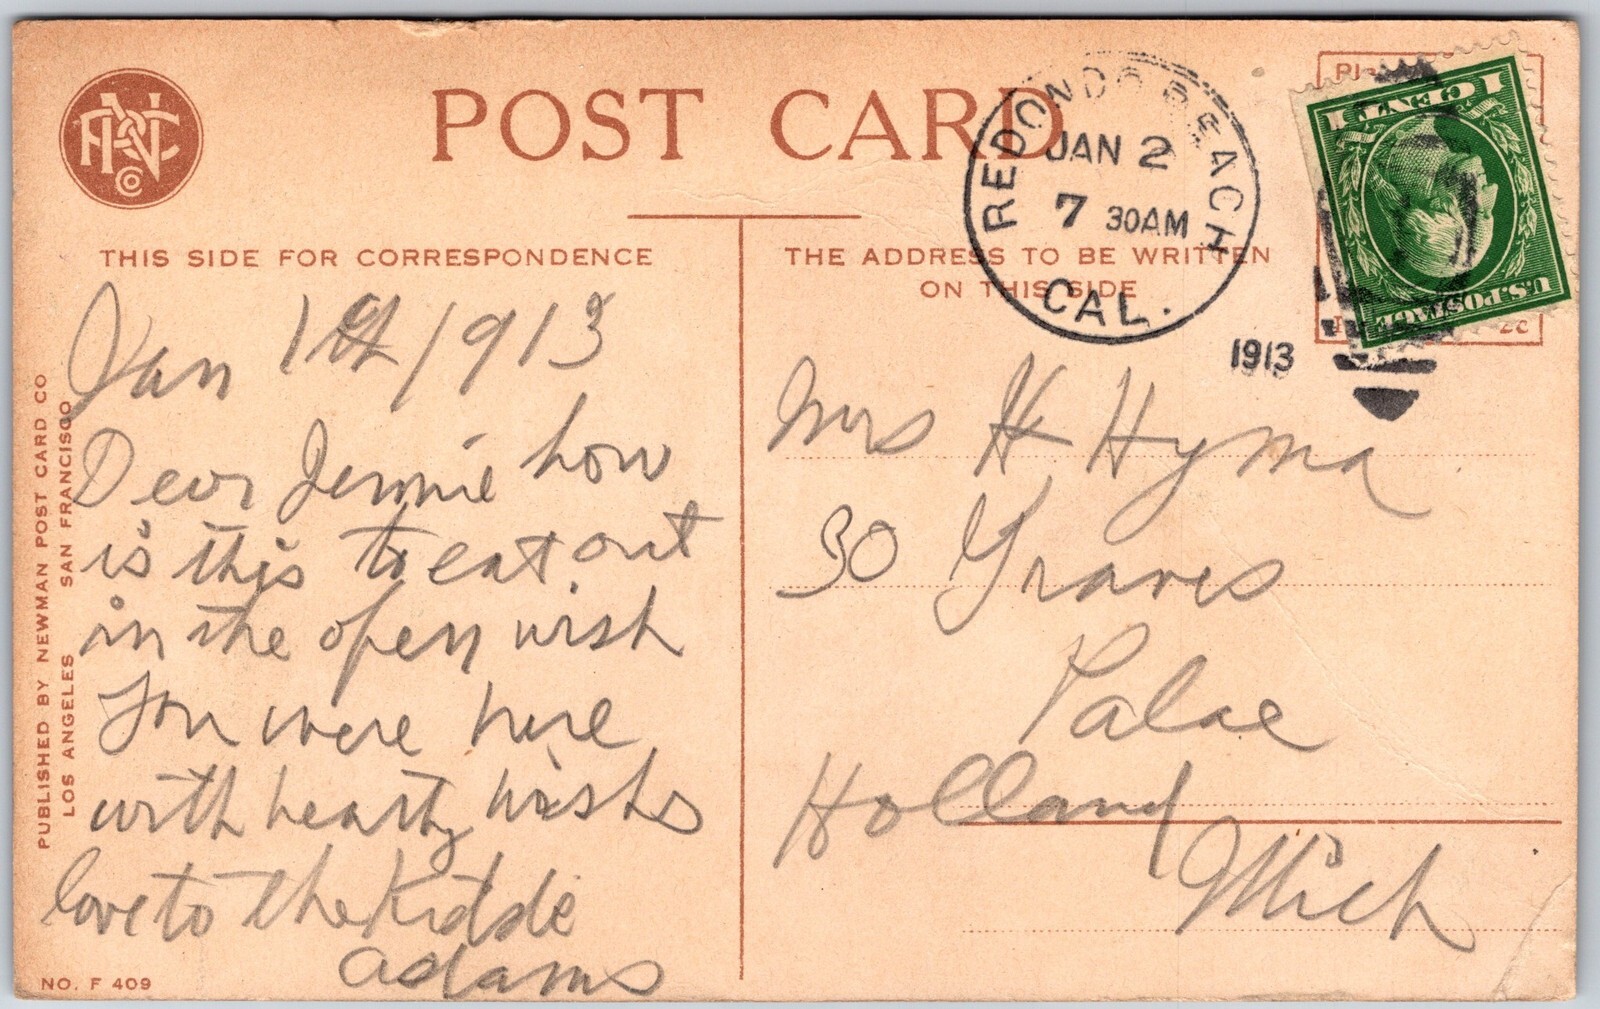 POST CARD
THIS SIDE FOR CORRESPONDENCE
THE ADDRESS TO BE WRITTEN
ON THIS SIDE
REDONDO BEACH
JAN 2
7 30AM
CAL.
1913
1 CENT 1
U.S. POSTAGE
PUBLISHED BY NEWMAN POST CARD CO
LOS ANGELES SAN FRANCISCO
Jan 1st 1913
Dear Jennie how
is this to eat out
in the open wish
you were here
with hearty wishs
love to the Kiddie
Adams
Mrs H Hyma
30 Graves
Palae
Holland
Mich
NO. F 409